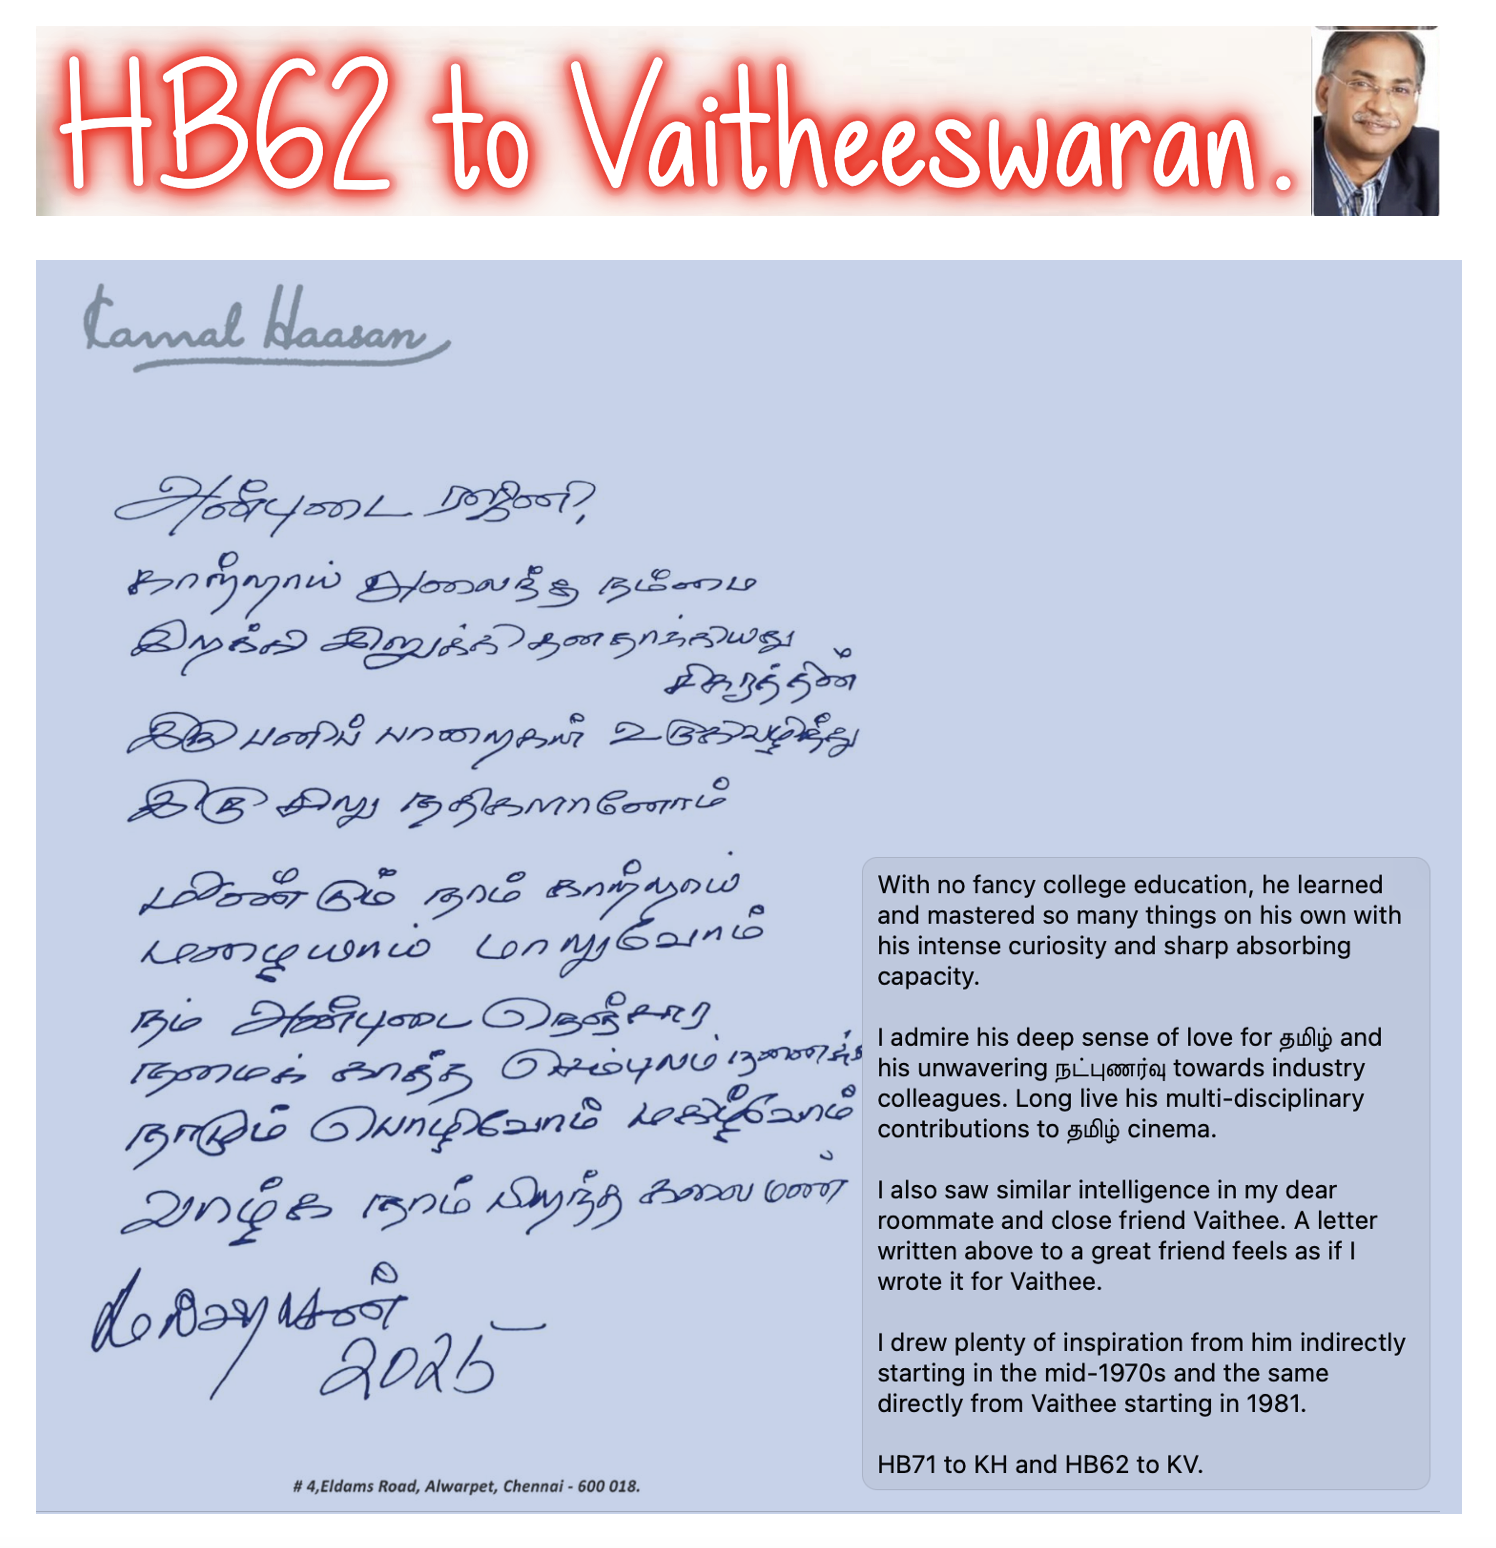 HB62 to Vaitheeswaran.
Kamal Haasan
அன்புடை ரஜினி,
காற்றாய் அலைந்த நம்மை
இறக்கி இறுக்கி தனதாக்கியது
சிகரத்தின்
இரு பனிப் பாறைகள் உருகிவழிந்து
இரு சிறு நதிகளானோம்
மீண்டும் நாம் காற்றாய்
மழையாய் மாறுவோம்
நம் அன்புடை நெஞ்சார
நமைக் காத்த செம்புலம் நனைக்க
நாடும் பொழிவோம் மகிழ்வோம்
வாழ்க நாம் பிறந்த கலை மண்
2025
# 4,Eldams Road, Alwarpet, Chennai - 600 018.
With no fancy college education, he learned
and mastered so many things on his own with
his intense curiosity and sharp absorbing
capacity.
I admire his deep sense of love for தமிழ் and
his unwavering நட்புணர்வு towards industry
colleagues. Long live his multi-disciplinary
contributions to தமிழ் cinema.
I also saw similar intelligence in my dear
roommate and close friend Vaithee. A letter
written above to a great friend feels as if I
wrote it for Vaithee.
I drew plenty of inspiration from him indirectly
starting in the mid-1970s and the same
directly from Vaithee starting in 1981.
HB71 to KH and HB62 to KV.